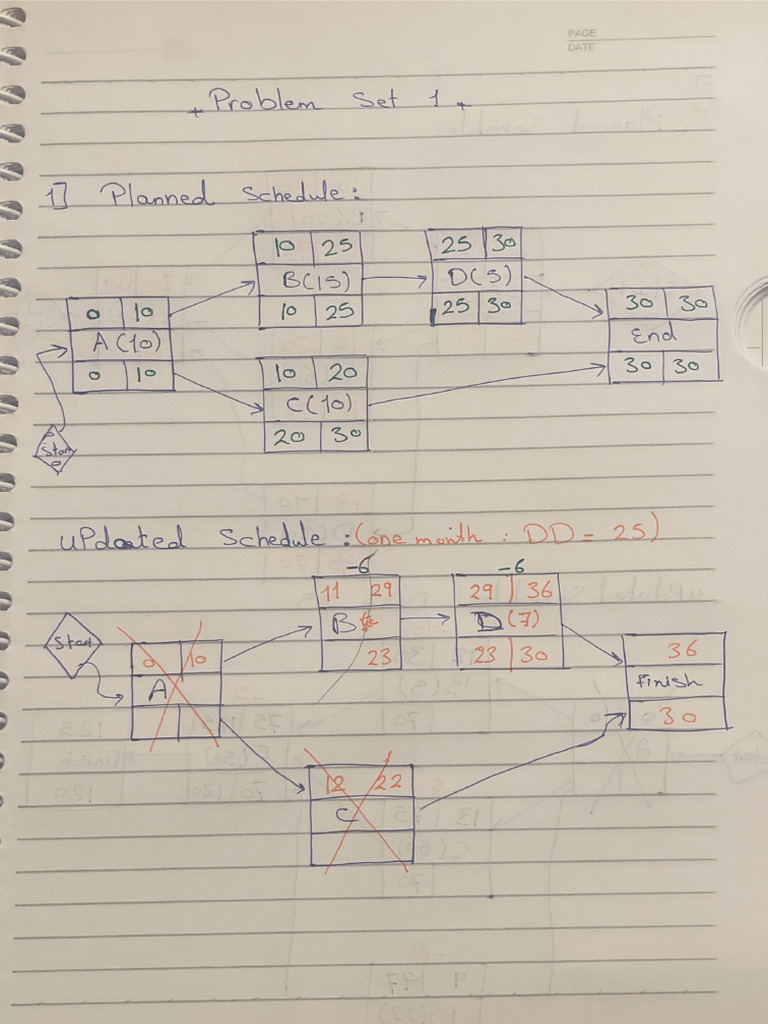 PAGE
DATE
Problem Set 1
1] Planned Schedule:
10 25
B(15)
10 25
25 30
D(5)
25 30
0 10
A(10)
0 10
30 30
End
30 30
10 20
C(10)
20 30
Start
uPdated Schedule: (one month: DD = 25)
-6
11 29
B
23
-6
29 36
D(7)
23 30
Start
0 10
A
36
Finish
30
12 22
C